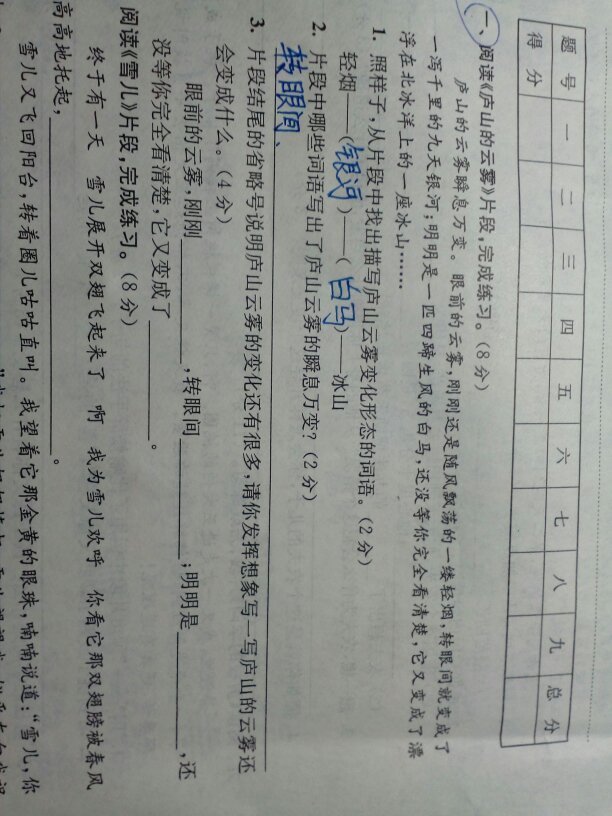 题号 一 二 三 四 五 六 七 八 九 总分
得分
一、阅读《庐山的云雾》片段,完成练习。(8分)
庐山的云雾瞬息万变。眼前的云雾,刚刚还是随风飘荡的一缕轻烟,转眼间就变成了
一泻千里的九天银河;明明是一匹四蹄生风的白马,还没等你完全看清楚,它又变成了漂
浮在北冰洋上的一座冰山……
1. 照样子,从片段中找出描写庐山云雾变化形态的词语。(2分)
轻烟——(银河)——(白马)——冰山
2. 片段中哪些词语写出了庐山云雾的瞬息万变?(2分)
转眼间、
3. 片段结尾的省略号说明庐山云雾的变化还有很多,请你发挥想象写一写庐山的云雾还
会变成什么。(4分)
眼前的云雾,刚刚________,转眼间________;明明是________,还
没等你完全看清楚,它又变成了________。
阅读《雪儿》片段,完成练习。(8分)
终于有一天 雪儿展开双翅飞起来了 啊 我为雪儿欢呼 你看它那双翅膀被春风
高高地托起,________。
雪儿又飞回阳台,转着圈儿咕咕直叫。我望着它那金黄的眼珠,喃喃说道:“雪儿,你